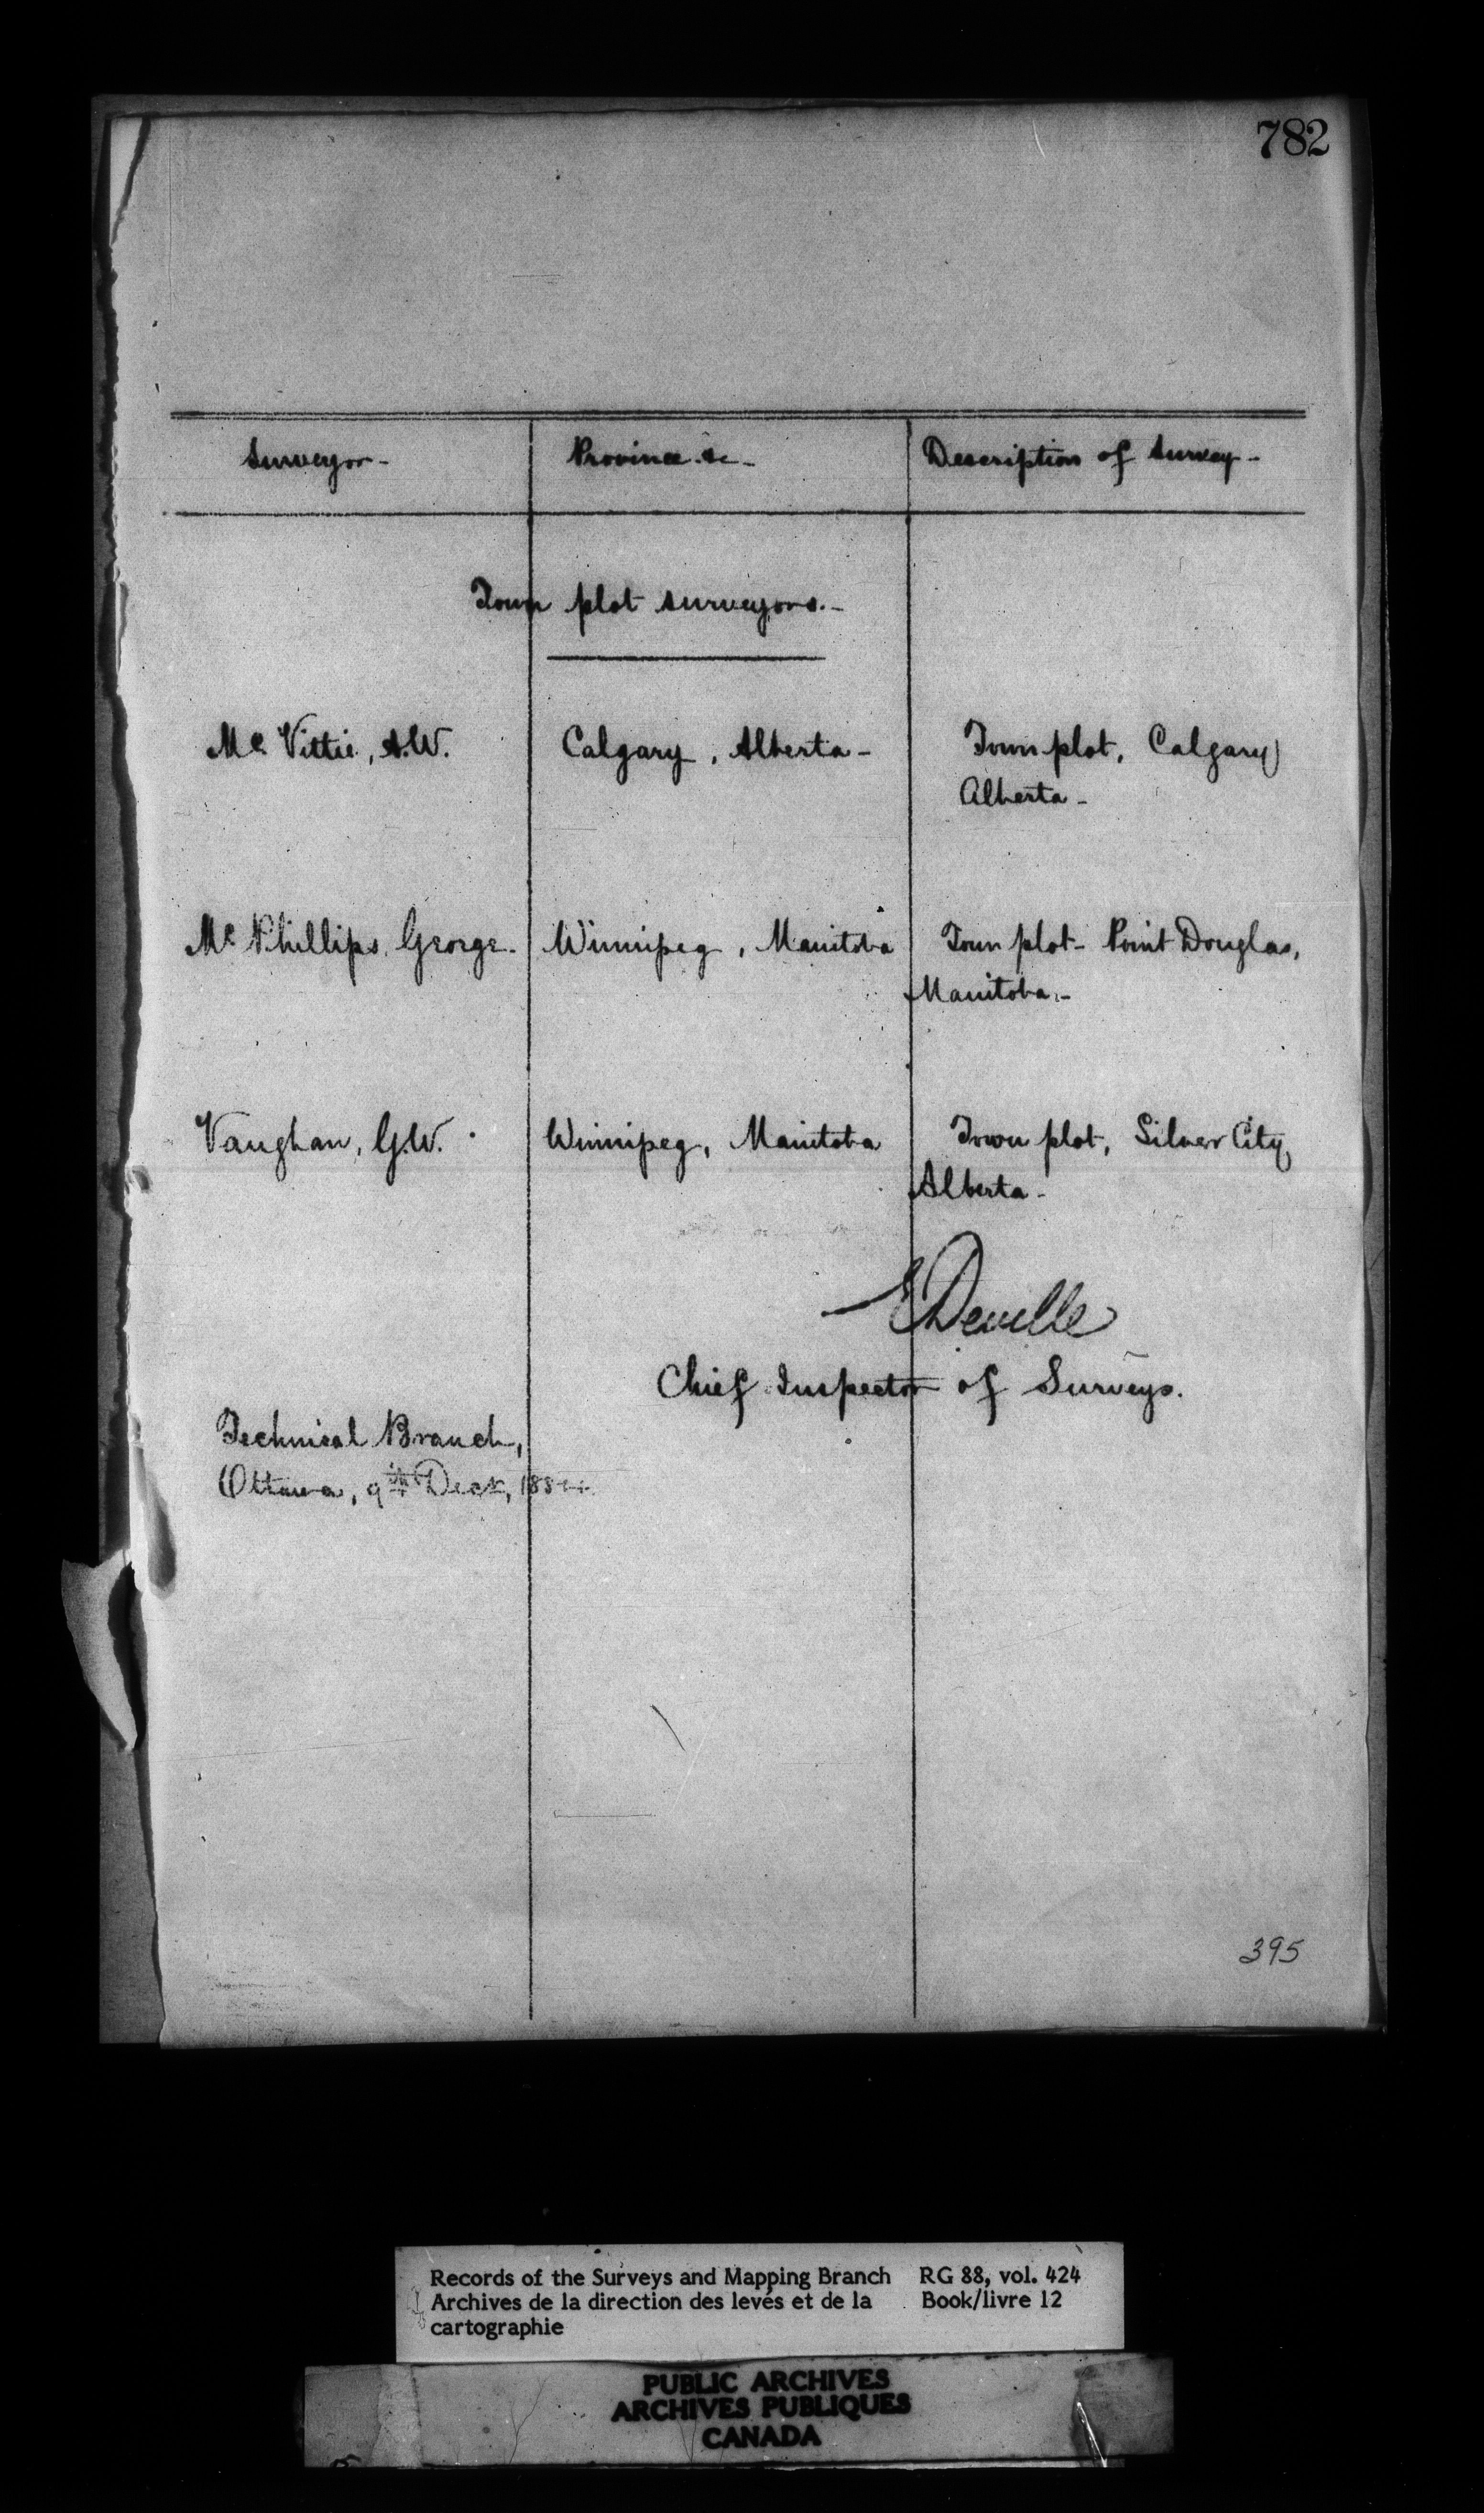 782
Surveyor - Province &c - Description of Survey -
Town plot surveyors. -
Mc Vittie, A.W. Calgary, Alberta - Town plot, Calgary
Alberta -
Mc Phillips, George. Winnipeg, Manitoba Town plot - Point Douglas,
Manitoba. -
Vaughan, G.W. Winnipeg, Manitoba Town plot, Silver City,
Alberta -
E Deville
Chief Inspector of Surveys.
Technical Branch,
Ottawa, 9th Decr,
395
Records of the Surveys and Mapping Branch RG 88, vol. 424
Archives de la direction des levés et de la Book/livre 12
cartographie
PUBLIC ARCHIVES
ARCHIVES PUBLIQUES
CANADA